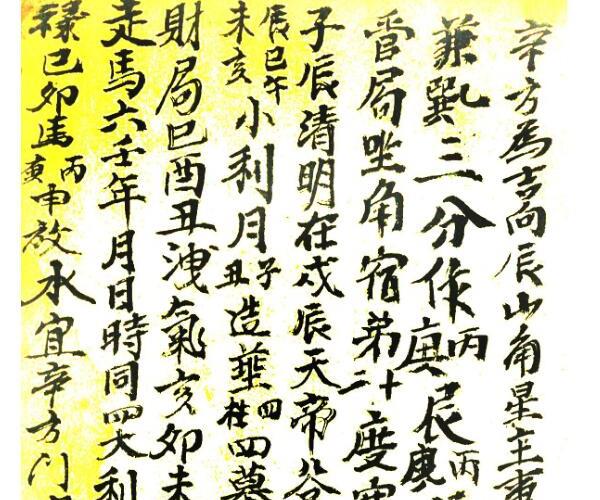 辛方為吉向辰山角星主事
兼巽三分作丙庚辰丙庚
管局坐角宿第二十度
子辰清明在戌辰天帝
辰巳午未亥小利月子丑造葬四柱四墓
財局巳酉丑洩氣亥卯未
走馬六壬年月日時同四大利
祿巳卯馬丙申放水宜辛方門